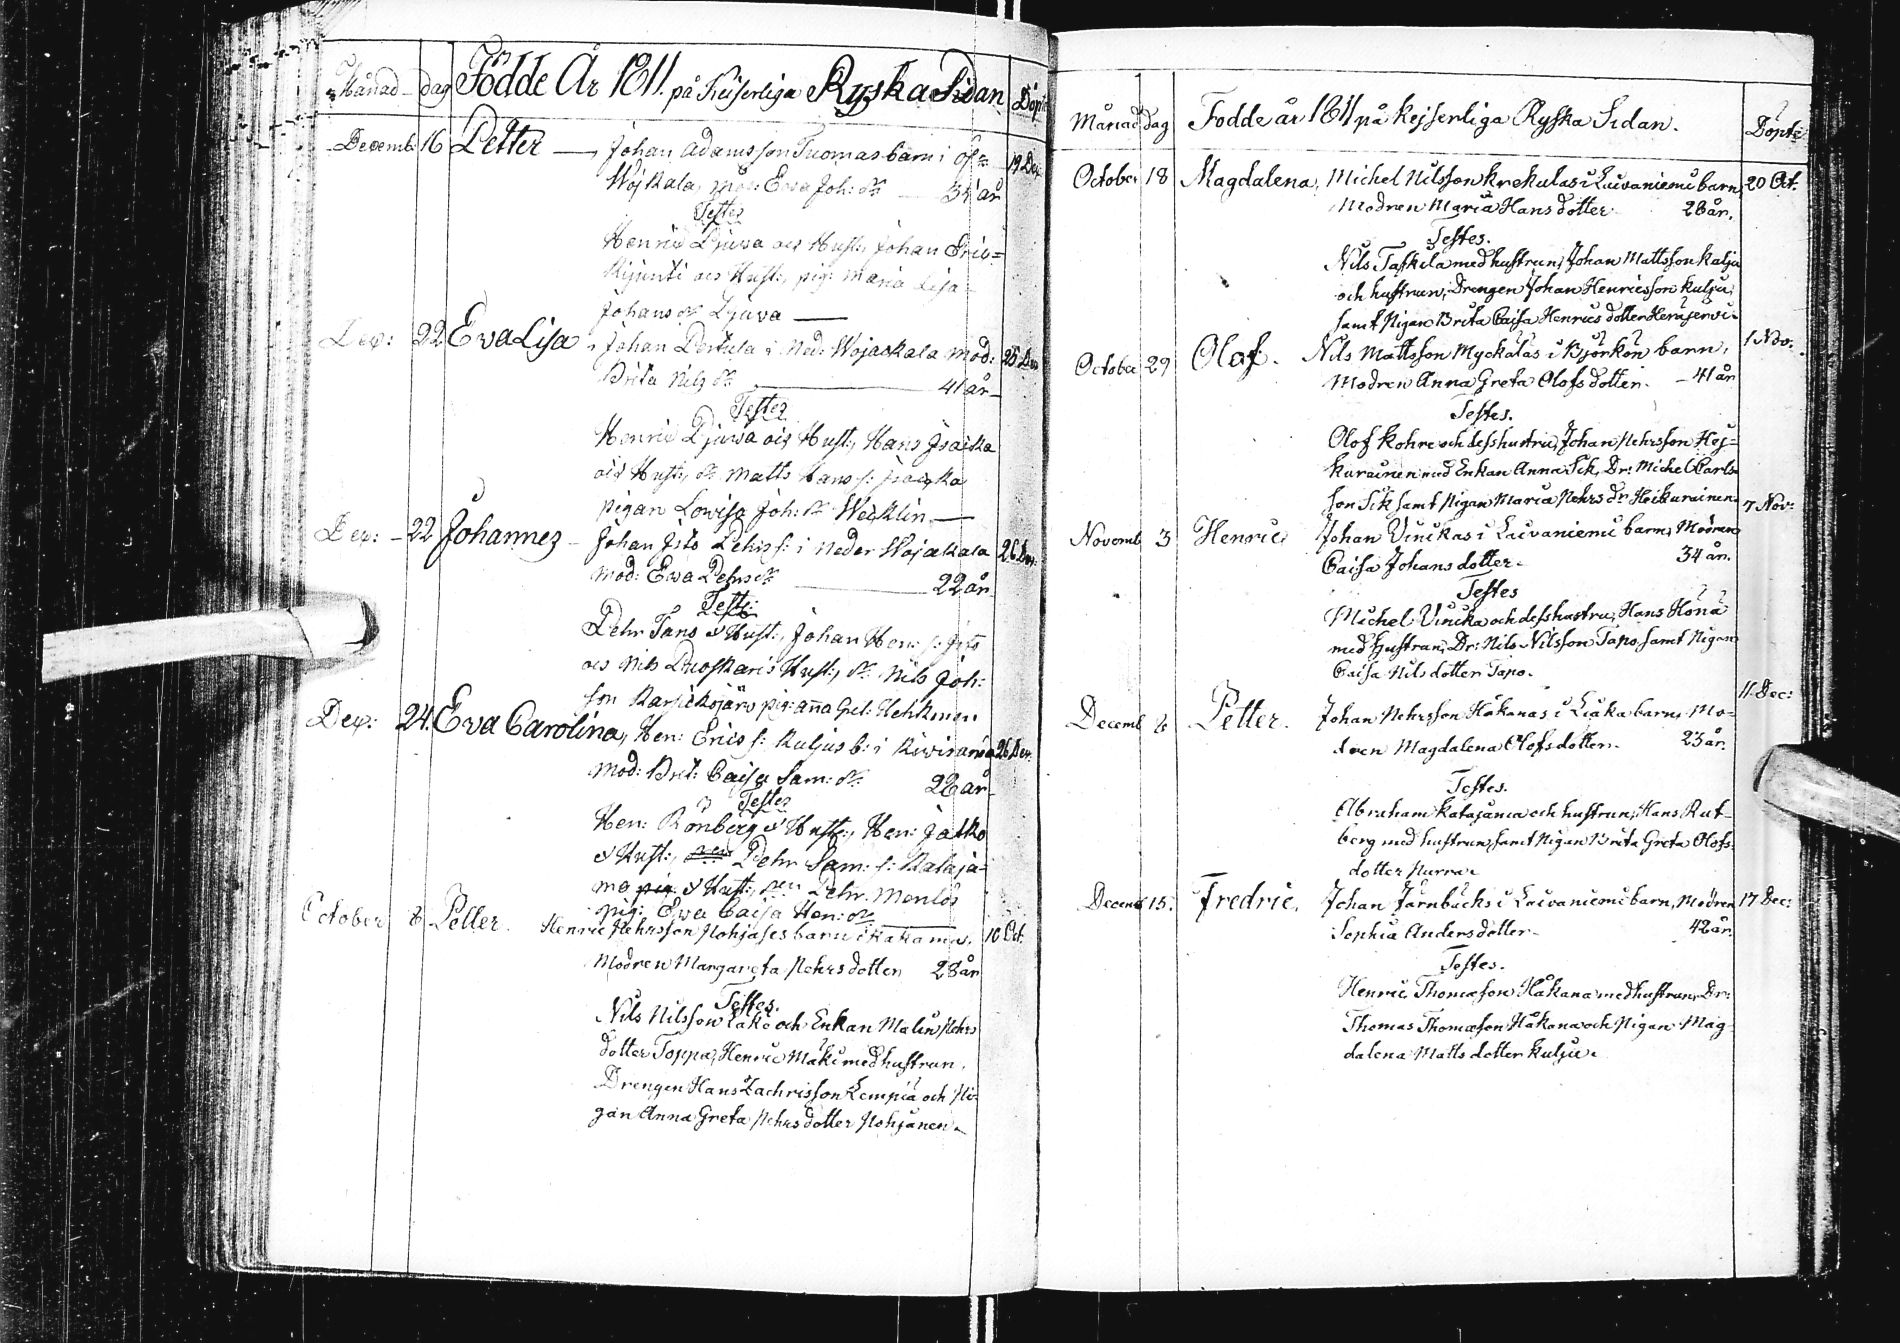 Månad dag Födde År 1811. på Keiserliga Ryska Sidan Döpt
Decemb: 16 Petter — Johan Adamsson Tuomas barn i Öf= 19 Dec.
Wojkala, mod: Ewa Joh: dr — 34 år
Testes
Henric Ljuva och Hust:, Johan Eric=
och Hust:, pig: Maria Lisa
Johans dr Ljuva —
Dec: 22 Eva Lisa, Johan Pertula i Ned: Wojackala mod: 25 Dec
Brita Nils dr — 41 år
Testes
Henric Ljuva och Hust:, Hans Isacka
och Hust:, dr Matts Hans s: Isacka
pigan Lowisa Joh: dr Wecklin —
Dec: — 22 Johannes — Johan Isto Pehrs s: i Neder Wojakala 26 Dec.
Mod: Ewa Pehrs dr — 22 år
Testes
Pehr Tano & Hust:, Johan Hen: s:
och Nils Hust:, dr: Nils Joh:
son Karjickojärv pig: Anna Gret:
Dec: 24. Eva Carolina, Hen: Erics s: Kuljus b: i Kiviranda 26 Dec.
Mod: Brit: Caisa Sam: dr 22 år
Testes
Hen: Rönberg & Hust:, Hen: Jatko
& Hust:, Pehr Sam: s: Kataja=
ma & Hust:, Pehr
pig: Ewa Caisa Hen: dr —
October 8 Petter. Henric Pehrsson Pohjases barn i 10 Oct.
Modren Margareta Pehrsdotter 28 år
Testes.
Nils Nilsson och Enkan Malin Pehrs
dotter Toppa, Henric Mäki med hustrun,
Drengen Hans Zachrisson Kempiä och Pi-
gan Anna Greta Pehrsdotter Pohjanen.
Månad dag Födde år 1811 på Kejserliga Ryska Sidan. Döpte
October 18 Magdalena, Michel Nilsson Krekulas i Laivaniemi barn, 20 Oct.
Modren Maria Hansdotter 28 år.
Testes.
Nils Taskila med hustrun, Johan Mattsson Kalju
och hustrun, Drengen Johan Henricsson Kulju,
samt Pigan Brita Caisa Henricsdotter Herajervi.
October 29 Olof. Nils Mattsson Myckälas i Björkön barn, 1 Nov.
Modren Anna Greta Olofsdotter. — 41 år
Testes.
Olof Kohre och dess hustru, Johan Pehrsson Hej=
kurainen med Enkan Anna Sik, Dr: Michel Carls=
son Sik samt Pigan Maria Pehrs dr Heikurainen.
Novemb. 3 Henric, Johan Vinikas i Laivaniemi barn, Modren 7 Nov:
Caisa Johansdotter. 34 år.
Testes
Michel Vinika och dess hustru, Hans Höna
med hustrun, Dr: Nils Nilsson Tapo, samt Pigan
Caisa Nilsdotter Tapo.
Decemb. 8 Petter. Johan Pehrsson Håkanas i Liaka barn, Mo- 11 Dec:
dren Magdalena Olofsdotter. 23 år.
Testes.
Abraham Katajama och hustrun, Hans Rut-
berg med hustrun, samt Pigan Brita Greta Olofs-
dotter
Decemb. 15. Fredric, Johan Järnbäcks i Laivaniemi barn, Modren 17 Dec:
Sophia Andersdotter. 42 år.
Testes.
Henric Thomasson Håkana med hustrun, Dr:
Thomas Thomasson Håkana och Pigan Mag
dalena Mattsdotter Kulju.